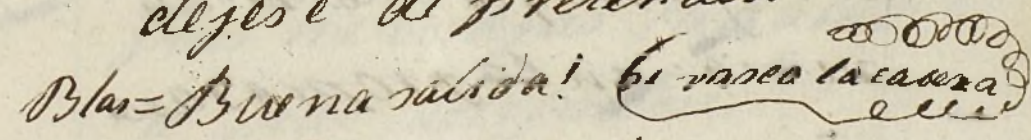 dejese de
Blas= Buena salida! (se rasca la cabeza)